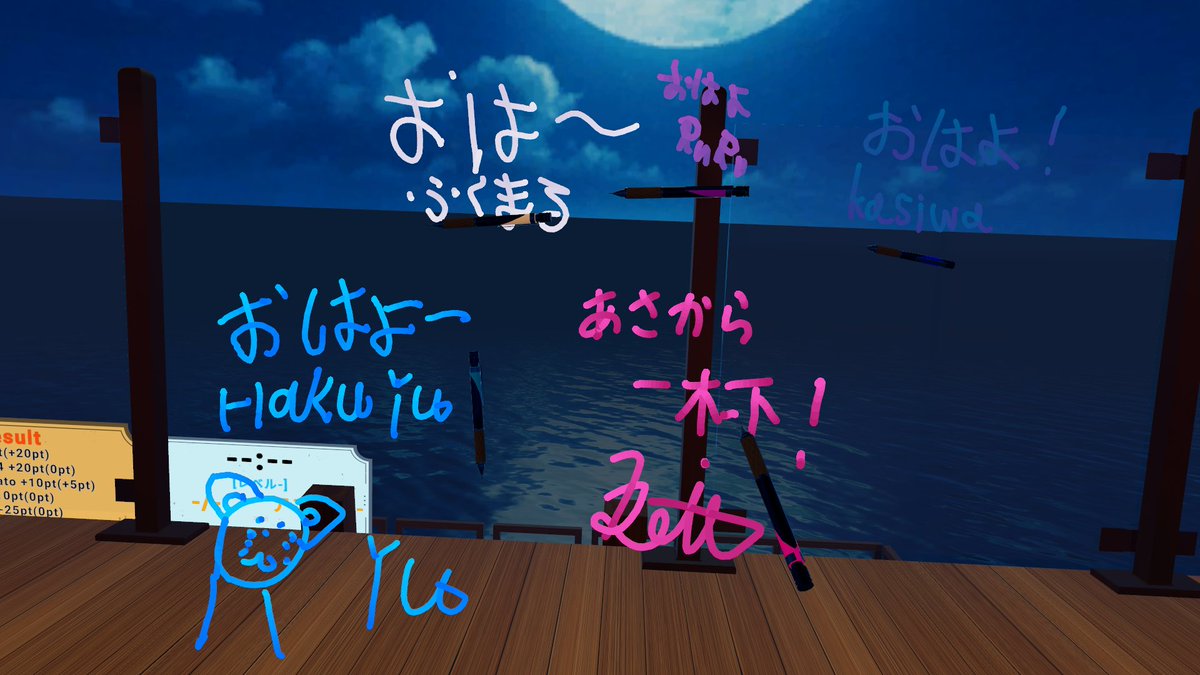 おは〜
ふくまろ
おはよ
RuRu
おはよ!
kasiwa
おはよー
Hakuju
あさから
一杯!
Zett
esult
t(+20pt)
4 +20pt(0pt)
ato +10pt(+5pt)
0pt(0pt)
-25pt(0pt)
--:--
[レベル-]
Yu